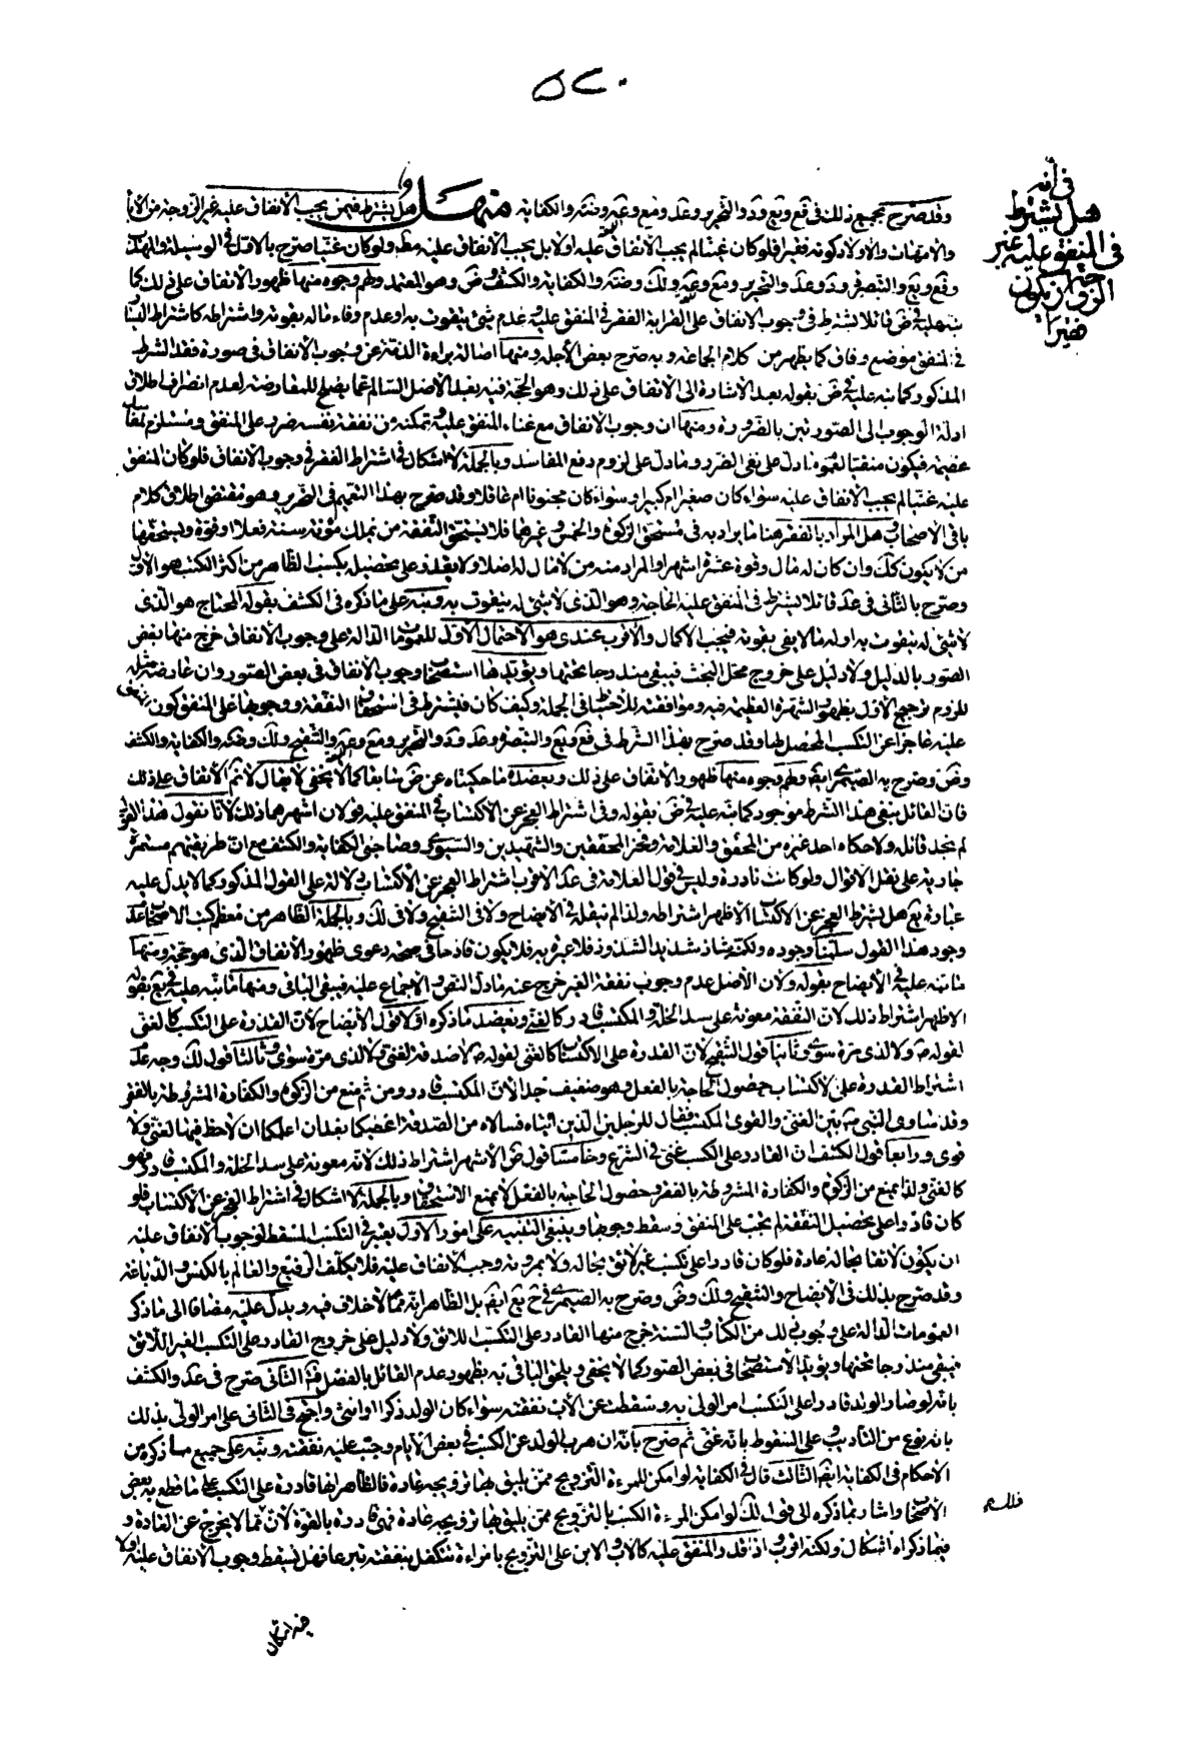 ٥٢٠
في أنه
هل يشترط
في المنفق عليه غير
الزوجة ان يكون
فقيرا
وقد صرح بجميع ذلك في فع ويع ود والتحرير وعد ومع وضه والكفاية منهل وهل يشترط فيمن يجب الانفاق عليه غير الزوجة من الآبا
والامهات والاولاد كونه فقيرا فلو كان غنيا لم يجب الانفاق عليه او لا بل يجب الانفاق عليه مط ولو كان غنيا صرح بالاول في الوسيلة
وفع ويع والتبصرة ود وعد والتحرير ومع ولك وضه والكفاية والكشف وض وهو المعتمد ولهم وجوه منها ظهور الاتفاق على ذلك كما
نبه عليه في ض قائلا يشترط في وجوب الانفاق على القرابة الفقر في المنفق عليه عدم شئ يتقوت به او عدم وفاء ماله بقوته واشتراطه كاشتراط
في المنفق موضع وفاق كما يظهر من كلام الجماعة وبه صرح بعض الأجلة ومنها اصالة براءة الذمة عن وجوب الانفاق في صورة فقد الشرط
المذكور كما نبه عليه في ض بقوله بعد الاشارة الى الاتفاق على ذلك وهو الحجة فيه بعد الاصل السالم عما يصلح للمعارضة لعدم انصراف اطلاق
ادلة الوجوب الى الصورتين بالضرورة ومنها ان وجوب الانفاق مع غناء المنفق عليه وتمكنه من نفقة نفسه ضرر على المنفق ومستلزم
عظيمة فيكون منفيا لعموم ما دل على نفى الضرر وما دل على لزوم دفع المفاسد وبالجملة لا اشكال في اشتراط الفقر في وجوب الانفاق فلو كان المنفق
عليه غنيا لم يجب الانفاق عليه سواء كان صغيرا ام كبيرا وسواء كان مجنونا ام عاقلا وقد صرح بهذا التعميم في التحرير وهو مقتضى اطلاق كلام
باقي الاصحاب وهل المراد بالفقر هنا ما يراد به في مستحق الزكوة والخمس وغيرهما فلا يستحق النفقة من يملك مؤنة سنة فعلا او قوة ويستحقها
من لا يكون كك وان كان له مال وقوة عشرة اشهر او المراد منه من لا مال له اصلا ولا يقدر على تحصيله بكسب الظاهر من اكثر الكتب هو الاول
وصرح بالثاني في عد قائلا يشترط في المنفق عليه الحاجة وهو الذي لا شئ له يتقوت به ونبه على ما ذكره في الكشف بقوله المحتاج هو الذي
لا شئ له يتقوت به او له ما لا يفي بقوته فيجب الاكمال والاقرب عندي هو الاحتمال الاول للعمومات الدالة على وجوب الانفاق خرج منها بعض
الصور بالدليل ولا دليل على خروج محل البحث فيبقى مندرجا تحتها ويؤيدها استصحاب وجوب الانفاق في بعض الصور وان عارضه مثله
للزوم ترجيح الاول بظهور الشهرة العظيمة فيه وموافقته للاحتياط في الجملة وكيف كان فيشترط في استحقاق النفقة ووجوبها على المنفق كون
عليه عاجزا عن التكسب المحصل لها وقد صرح بهذا الشرط في فع ويع والتبصرة وعد ود والتحرير ومع والتنقيح ولك والكفاية والكشف
وض وصرح به الصيمري ايضا ولهم وجوه منها ظهور الاتفاق على ذلك ويعضده ما حكيناه عن ض سابقا كما لا يخفى لا يقال لا نم الاتفاق على ذلك
فان القائل بنفي هذا الشرط موجود كما نبه عليه في ض بقوله وفي اشتراط العجز عن الاكتساب في المنفق عليه قولان اشهرهما ذلك لانا نقول هذا القول
لم نجد قائله ولا حكاه احد غيره من المحقق والعلامة وفخر المحققين والشهيدين والسيوري وصاحبي الكفاية والكشف مع ان طريقتهم مستمرة
جارية على نقل الاقوال ولو كانت نادرة وليس في قول العلامة في عد الاقرب اشتراط العجز عن الاكتساب دلالة على القول المذكور كما لا يدل عليه
عبارة يع هل يشترط العجز عن الاكتساب الاظهر اشتراطه ولذا لم ينقله في الايضاح ولا في التنقيح ولا في لك وبالجملة الظاهر من معظم كتب الاصحاب عدم
وجود هذا القول سلمنا وجوده ولكنه شاذ شديد الشذوذ فلا عبرة به فلا يكون قادحا في صحة دعوى ظهور الاتفاق الذي هو حجة ومنها
ما نبه عليه في الايضاح بقوله ولان الاصل عدم وجوب نفقة الغير خرج عنه ما دل النص والاجماع عليه فيبقى الباقي ومنها ما نبه عليه في يع بقوله
الاظهر اشتراط ذلك لان النفقة معونة على سد الخلة والمكتسب قادر كالغنى ويعضد ما ذكره اولا قول الايضاح لان القدرة على التكسب كالغنى
لقوله ص ولا لذي مرة سوي وثانيا قول التنقيح لان القدرة على الاكتساب كالغنى لقوله ص لا صدقة لغني ولا لذي مرة سوى وثالثا قول لك وجه عدم
اشتراط القدرة على الاكتساب حصول الحاجة بالفعل وهو ضعيف جدا لان المكتسب قادر ومن ثم منع من الزكوة والكفارة المشروطة بالفقر
وقد ساوى النبي ص بين الغنى والقوى المكتسب فقال للرجلين الذين اتياه فسالاه من الصدقة اعطيكما بعد ان اعلمكما ان لا حظ فيها لغنى ولا
قوى ورابعا قول الكشف ان القادر على الكسب غنى في الشرع وخامسا قول ض الاشهر اشتراط ذلك لانه معونة على سد الخلة والمكتسب قادر فهو
كالغنى ولذا يمنع من الزكوة والكفارة المشروطة بالفقر وحصول الحاجة بالفعل لا يمنع الاستحقاق وبالجملة لا اشكال في اشتراط العجز عن الاكتساب فلو
كان قادرا على تحصيل النفقة لم يجب على المنفق وسقط وجوبها وينبغي التنبيه على امور الاول يعتبر في التكسب المسقط لوجوب الانفاق عليه
ان يكون لائقا بحاله عادة فلو كان قادرا على تكسب غير لائق بحاله ولا بمروته وجب الانفاق عليه فلا يكلف الرفيع والعالم بالكنس والدباغة
وقد صرح بذلك في الايضاح والتنقيح ولك وض وصرح به الصيمري في ح يع ايضا بل الظاهر انه مما لا خلاف فيه ويدل عليه مضافا الى ما ذكر
العمومات الدالة على وجوب ذلك من الكتاب والسنة خرج منها القادر على التكسب اللائق ولا دليل على خروج القادر على التكسب الغير اللائق
فيبقى مندرجا تحتها ويؤيده الاستصحاب في بعض الصور كما لا يخفى ويلحق الباقي به بظهور عدم القائل بالفصل الثاني صرح في عد والكشف
بانه لو صار الولد قادرا على التكسب امر الولى به وسقطت عن الاب نفقته سواء كان الولد ذكرا او انثى واحتج في الثاني على امر الولي بذلك
بانه نوع من التاديب وعلى السقوط بانه غنى ثم صرح بانه ان هرب الولد عن الكسب في بعض الايام وجبت عليه نفقته ونبه على جميع ما ذكره من
الاحكام في الكفاية ايضا الثالث قال في الكفاية لو امكن للمرءة التزويج ممن يليق بها تزويجه عادة فالظاهر انها قادرة على التكسب على ما قطع به بعض
الاصحاب واشار بما ذكره الى قول لك لو امكن المرءة الكسب بالتزويج ممن يليق بها تزويجه عادة فهى قادرة بالقوة لان ذلك مما لا يخرج عن العادة و
فيما ذكراه اشكال ولكنه اقرب اذا قدر المنفق عليه كالاب والابن على التزويج بامراءة تتكفل بنفقته تبرعا فهل يسقط وجوب الانفاق عليه ولا
فيه اشكال